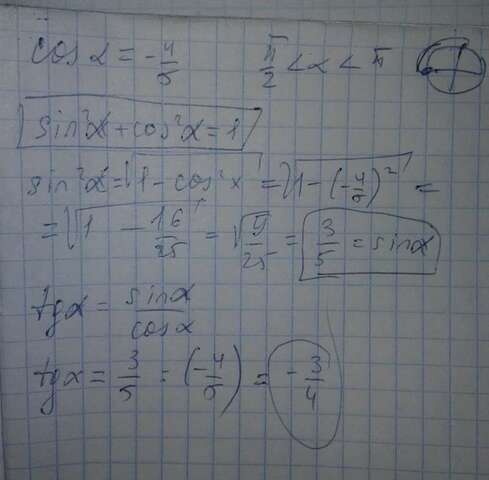 cos α = -4/5   π/2 < α < π
sin²α + cos²α = 1
sin²α = √(1 - cos²x) = √(1 - (-4/5)²) =
= √(1 - 16/25) = √(9/25) = 3/5 = sinα
tgα = sinα/cosα
tgα = 3/5 : (-4/5) = -3/4